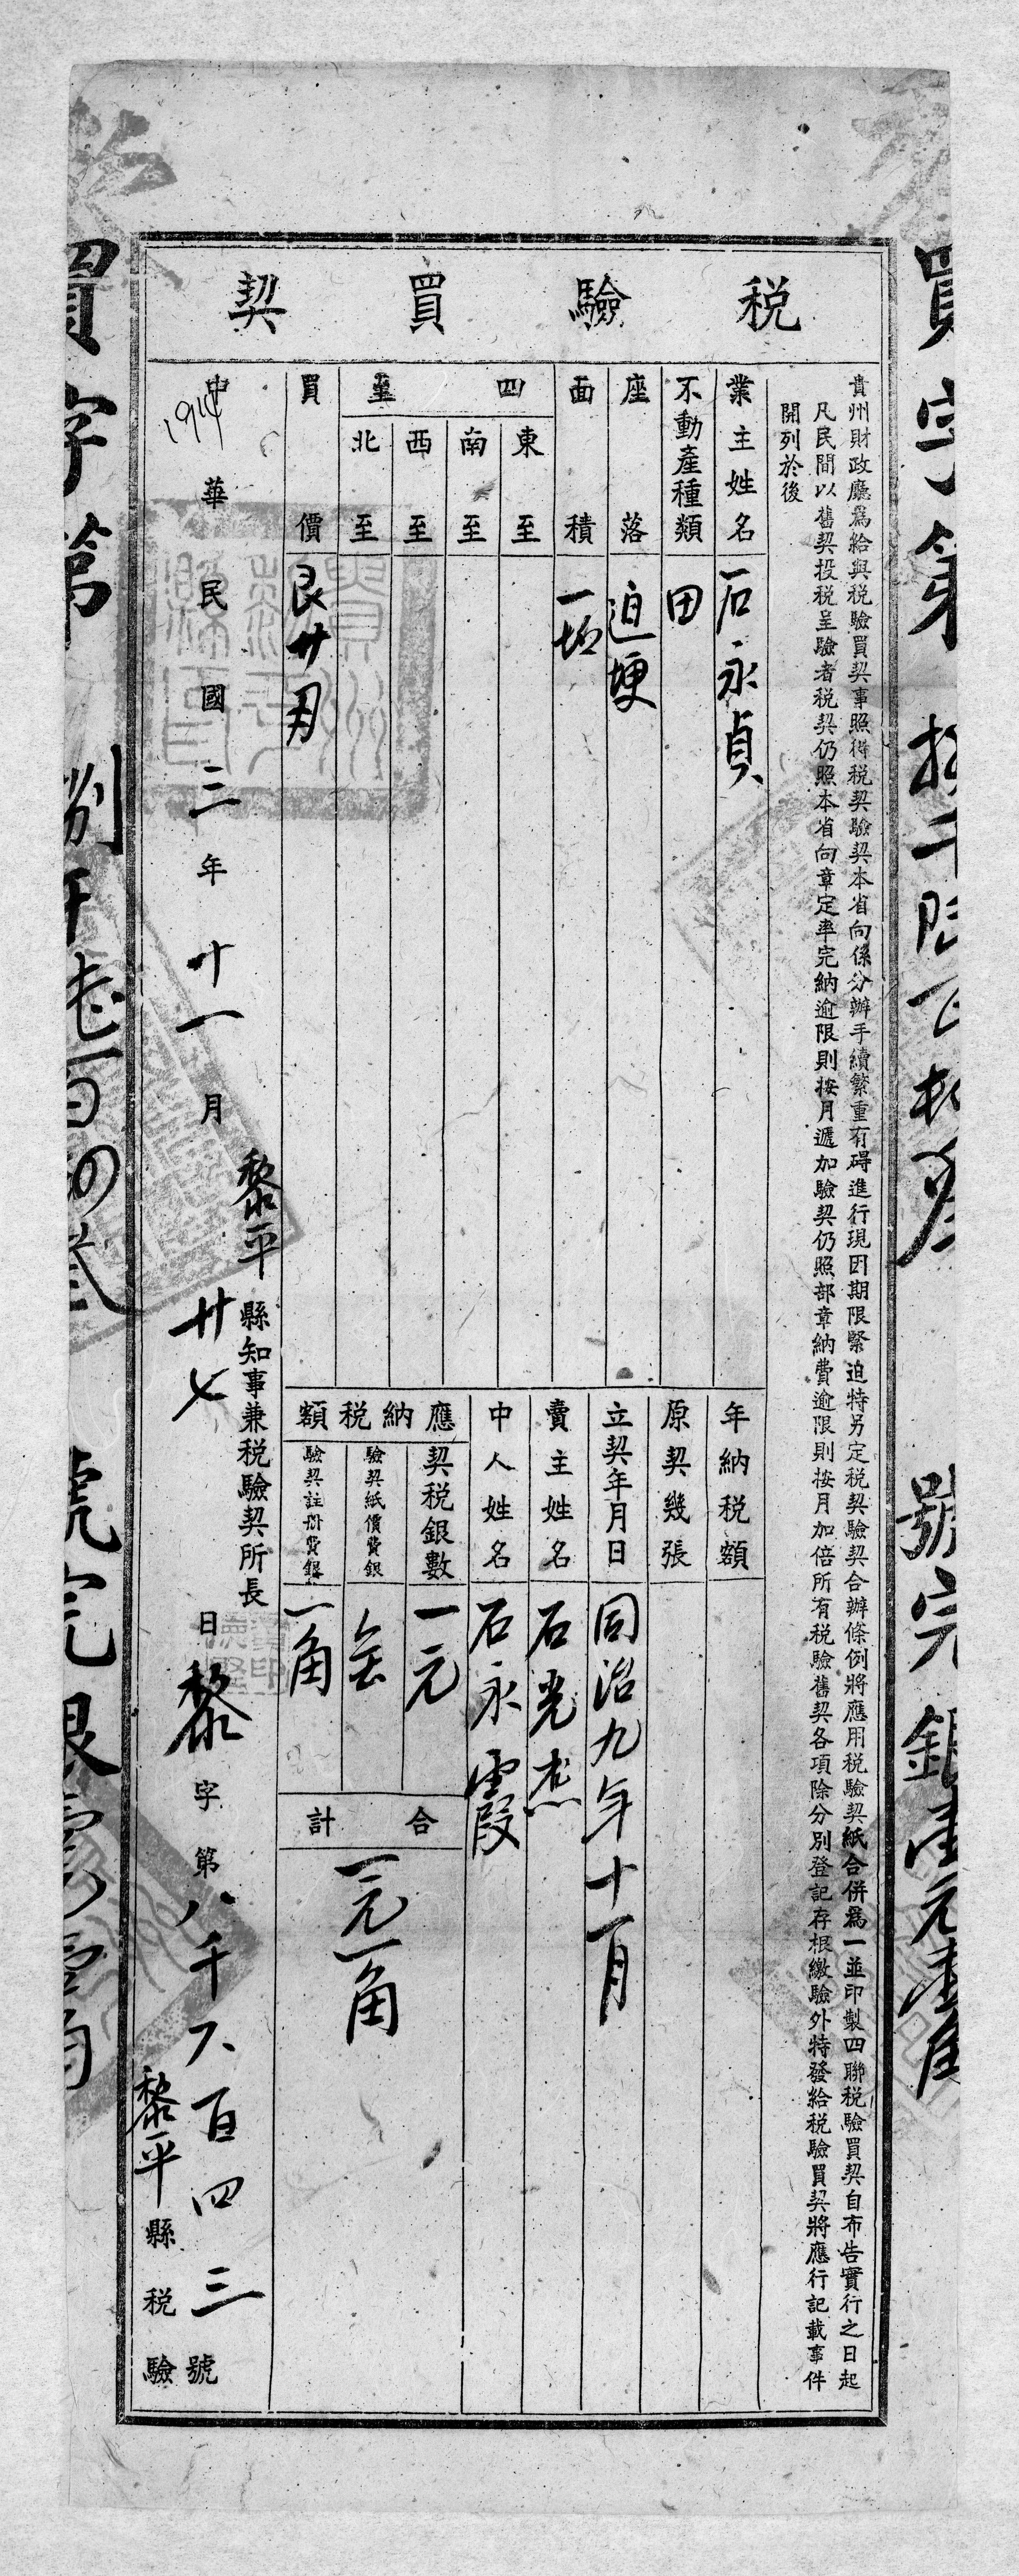 税驗買契
貴州財政廳爲給與税驗買契事照得税契驗契本省向係分辦手續繁重有碍進行現因期限緊迫特另定税契驗契合辦條例將應用税驗契紙合併爲一並印製四聯税驗買契自布告實行之日起
凡民間以舊契投税呈驗者税契仍照本省向章定率完納逾限則按月遞加驗契仍照部章納費逾限則按月加倍所有税驗舊契各項除分別登記存根繳驗外特發給税驗買契將應行記載事件
開列於後
業主姓名 石永貞
不動產種類 田
座落 迫埂
面積 一坵
四至
東至
南至
西至
北至
買價 艮廿用
年納税額
原契幾張
立契年月日 同治九年十一月
賣主姓名 石光杰
中人姓名 石永霞
應納税額
契税銀數 一元
驗契紙價費銀
驗契註册費銀 一角
合計 一元一角
中華民國三年十一月廿七日黎字第八千六百四三號
1914
黎平縣知事兼税驗契所長
黎平縣税驗
買字第
號完銀壹元壹角
買字第捌千陸百四叁號完銀壹元壹角